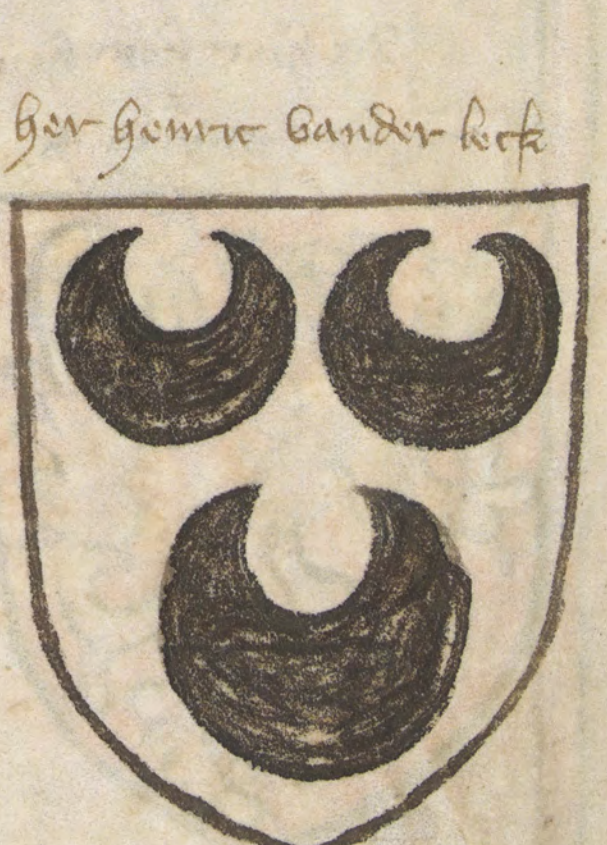 her henric vander beck